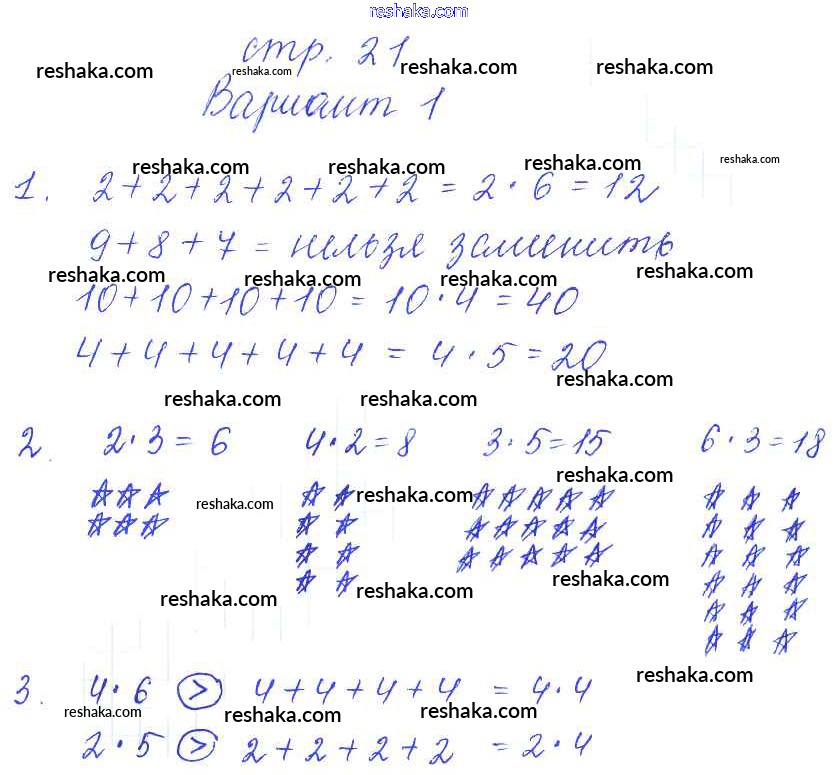 reshaka.com
стр. 21
reshaka.com reshaka.com reshaka.com reshaka.com
Вариант 1
reshaka.com reshaka.com reshaka.com reshaka.com
1. 2+2+2+2+2+2 = 2·6 = 12
9+8+7 = нельзя заменить
reshaka.com reshaka.com reshaka.com reshaka.com
10+10+10+10 = 10·4 = 40
4+4+4+4+4 = 4·5 = 20
reshaka.com
reshaka.com reshaka.com
2. 2·3 = 6 4·2 = 8 3·5 = 15 6·3 = 18
reshaka.com
reshaka.com reshaka.com
reshaka.com reshaka.com reshaka.com
reshaka.com
3. 4·6 > 4+4+4+4 = 4·4
reshaka.com reshaka.com reshaka.com
2·5 > 2+2+2+2 = 2·4